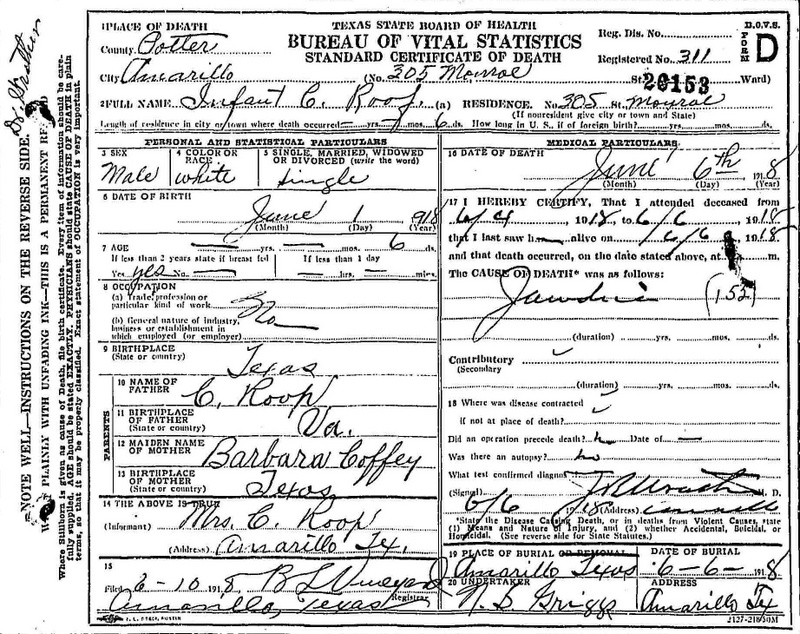 TEXAS STATE BOARD OF HEALTH
BUREAU OF VITAL STATISTICS
STANDARD CERTIFICATE OF DEATH
D.O.V.S.
FORM D
1 PLACE OF DEATH
County Potter
City Amarillo (No. 305 Monroe St. Ward)
Reg. Dis. No.
Registered No. 311
20153
2 FULL NAME Infant C. Roop (a) RESIDENCE. No. 305 St. Monroe
(If nonresident give city or town and State)
Length of residence in city or town where death occurred — yrs. — mos. 6 ds. How long in U. S., if of foreign birth? yrs. mos. ds.
PERSONAL AND STATISTICAL PARTICULARS
3 SEX Male
4 COLOR OR RACE white
5 SINGLE, MARRIED, WIDOWED OR DIVORCED (write the word) Single
6 DATE OF BIRTH
June 1 1918
(Month) (Day) (Year)
7 AGE — yrs. — mos. 6 ds.
If less than 2 years state if breast fed
Yes yes No —
If less than 1 day
— hrs. — mins.
8 OCCUPATION
(a) Trade, profession or particular kind of work No
(b) General nature of industry, business or establishment in which employed (or employer)
9 BIRTHPLACE (State or country) Texas
PARENTS
10 NAME OF FATHER C. Roop
11 BIRTHPLACE OF FATHER (State or country) Va.
12 MAIDEN NAME OF MOTHER Barbara Coffey
13 BIRTHPLACE OF MOTHER (State or country) Texas
14 THE ABOVE IS TRUE
(Informant) Mrs. C. Roop
(Address) Amarillo Tex.
15
Filed 6-10 1918 B L
Registrar
Amarillo, Texas
MEDICAL PARTICULARS
16 DATE OF DEATH
June 6th 1918
(Month) (Day) (Year)
17 I HEREBY CERTIFY, That I attended deceased from
6/4 1918 to 6/6, 1918
that I last saw h alive on 6/6, 1918
and that death occurred, on the date stated above, at m.
The CAUSE OF DEATH* was as follows:
(152)
(duration) yrs. mos. ds.
Contributory
(Secondary
(duration) yrs. mos. ds.
18 Where was disease contracted
if not at place of death?
Did an operation precede death? Date of —
Was there an autopsy? no
What test confirmed diagnosis
(Signed) M. D.
6/6 1918 (Address)
*State the Disease Causing Death, or in deaths from Violent Causes, state (1) Means and Nature of Injury, and (2) whether Accidental, Suicidal, or Homicidal. (See reverse side for State Statutes.)
19 PLACE OF BURIAL OR REMOVAL
Amarillo Texas
DATE OF BURIAL
6-6- 1918
20 UNDERTAKER
N. S. Griggs
ADDRESS
Amarillo Tex
NOTE WELL—INSTRUCTIONS ON THE REVERSE SIDE.
PLAINLY WITH UNFADING INK—THIS IS A PERMANENT
Where Stillborn is given as cause of Death, file birth certificate. Every item of information should be carefully supplied. AGE should be stated EXACTLY. PHYSICIANS should state CAUSE OF DEATH in plain terms, so that it may be properly classified. Exact statement of OCCUPATION is very important.